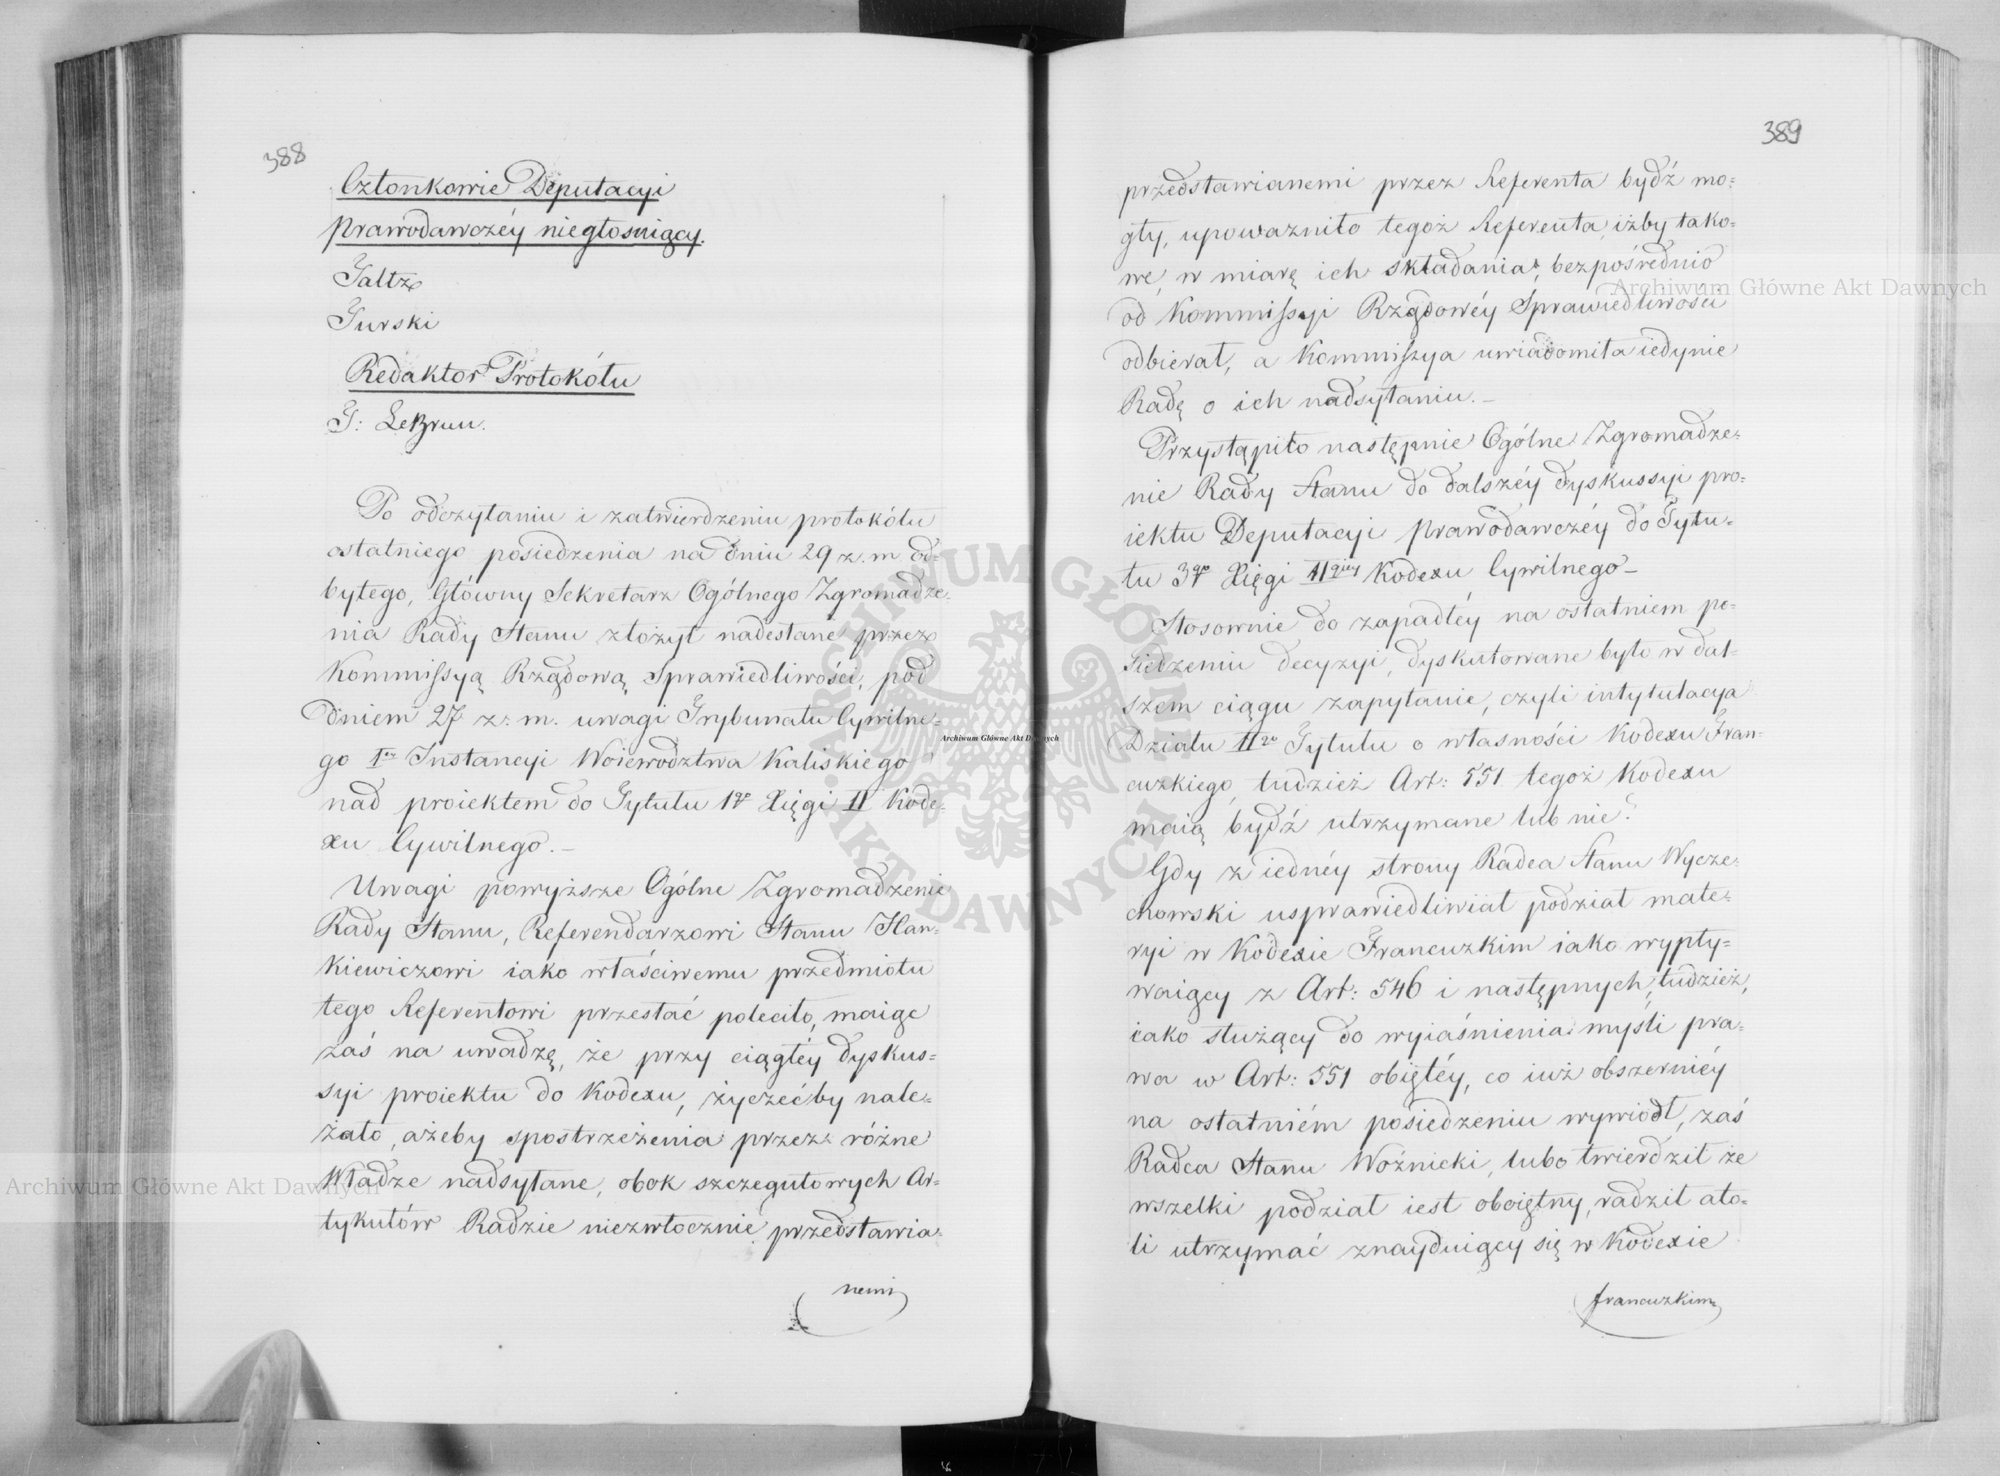 388
Członkowie Deputacyi
Prawodawczéy niegłosuiący.
Faltz
Gurski
Redaktor Protokółu
J: LeBrun.
Po odczytaniu i zatwierdzeniu protokółu
ostatniego posiedzenia na dniu 29 z. m od=
bytego, Główny Sekretarz Ogólnego Zgromadze=
nia Rady Stanu złożył nadesłane przez
Kommissyą Rządową Sprawiedliwości, pod
dniem 27 z. m. uwagi Trybunału Cywilne=
go 1ey Instancyi Woiewodztwa Kaliskiego
nad proiektem do Tytułu 1go Xięgi II Kode=
xu Cywilnego.–
Uwagi powyższe Ogólne Zgromadzenie
Rady Stanu, Referendarzowi Stanu Han=
kiewiczowi iako właściwemu przedmiotu
tego Referentowi przesłać poleciło, maiąc
zaś na uwadzę, że przy ciągłéy dyskus=
syi proiektu do Kodexu, życzećby nale=
żało, ażeby spostrzeżenia przez różne
Władze nadsyłane, obok szczegułowych Ar=
tykułów Radzie niezwłocznie przedstawia=
nemi
389
przedstawianemi przez Referenta bydź mo=
gły, upoważniło tegoż Referenta, iżby tako=
we, w miarę ich składania, bezpośrednio
od Kommissyi Rządowéy Sprawiedliwości
odbierał, a Kommissya uwiadomiła iedynie
Radę o ich nadsyłaniu.–
Przystąpiło następnie Ogólne Zgromadze=
nie Rady Stanu do dalszéy dyskussyi pro=
iektu Deputacyi Prawodawczéy do Tytu=
łu 3go Xięgi IIgiey Kodexu Cywilnego–
Stosownie do zapadłéy na ostatniem po=
siedzeniu decyzyi, dyskutowane było w dal=
szem ciągu zapytanie, czyli intytulacya
Działu IIgo Tytułu o własności Kodexu Fran=
cuzkiego, tudzież Art: 551 tegoż Kodexu
maią bydź utrzymane lub nie?
Gdy z iednéy strony Radca Stanu Wycze=
chowski usprawiedliwiał podział mate=
ryi w Kodexie Francuzkim iako wypły=
waiący z Art: 546 i następnych, tudzież,
iako służący do wyiaśnienia myśli pra=
wa w Art: 551 obiętéy, co iuż obszerniéy
na ostatniém posiedzeniu wywiódł, zaś
Radca Stanu Woźnicki, lubo twierdził że
wszelki podział iest oboiętny, radził ato=
li utrzymać znayduiący się w Kodexie
francuzkim
Archiwum Główne Akt Dawnych
Archiwum Główne Akt Dawnych
Archiwum Główne Akt Dawnych
ARCHIWUM GŁÓWNE AKT DAWNYCH